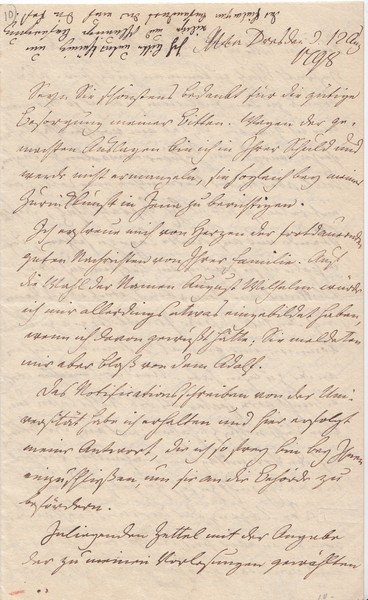 Dresden d. 12 Aug
1798
Seyn Sie schönstens bedankt für die gütige
Besorgung meiner Bitten. Wegen der ge-
machten Auslagen bin ich in Ihrer Schuld und
werde nicht ermangeln, sie sogleich bey meiner
Zurückkunft in Jena zu berichtigen.
Ich erfreue mich von Herzen der fortdauernden
guten Nachrichten von Ihrer Familie. Auf
die Wahl der Namen August Wilhelm würde
ich mir allerdings etwas eingebildet haben
wenn ich davon gewußt hätte; Sie meldeten
mir aber bloß von dem Adolf.
Das Notificationsschreiben von der Uni-
versität habe ich erhalten und hier erfolgt
meine Antwort, die ich so frey bin bey Ihnen
einzuschließen, um sie an die Behörde zu
befördern.
Inliegenden Zettel mit der Angabe
der zu meinen Vorlesungen gewählten